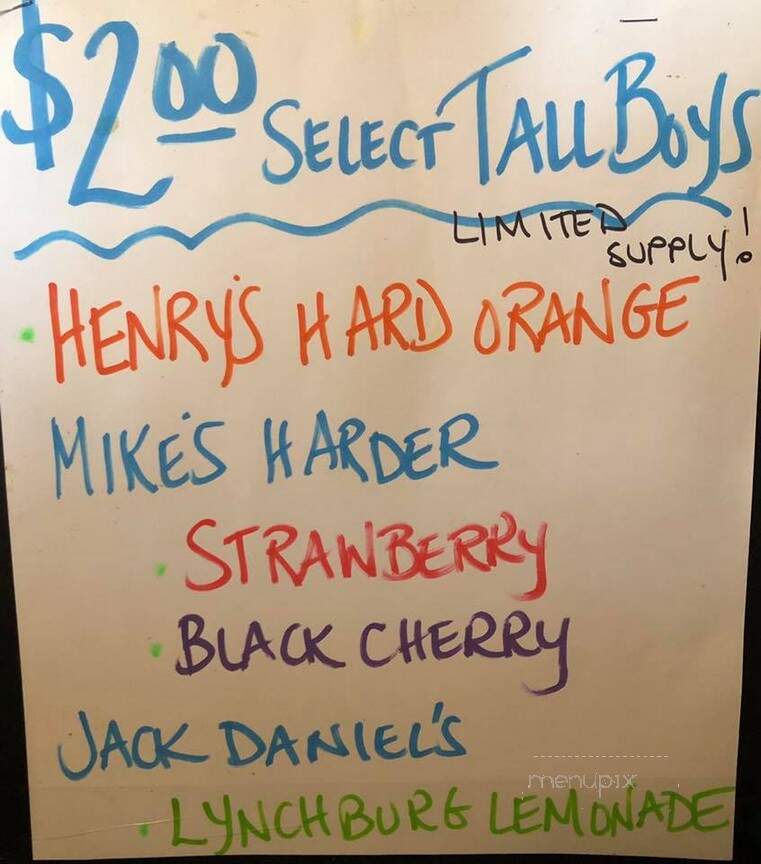 $2.00 SELECT TALL BOYS
LIMITED
SUPPLY!
• HENRY'S HARD ORANGE
MIKE'S HARDER
• STRAWBERRY
• BLACK CHERRY
JACK DANIEL'S
menupix
• LYNCHBURG LEMONADE